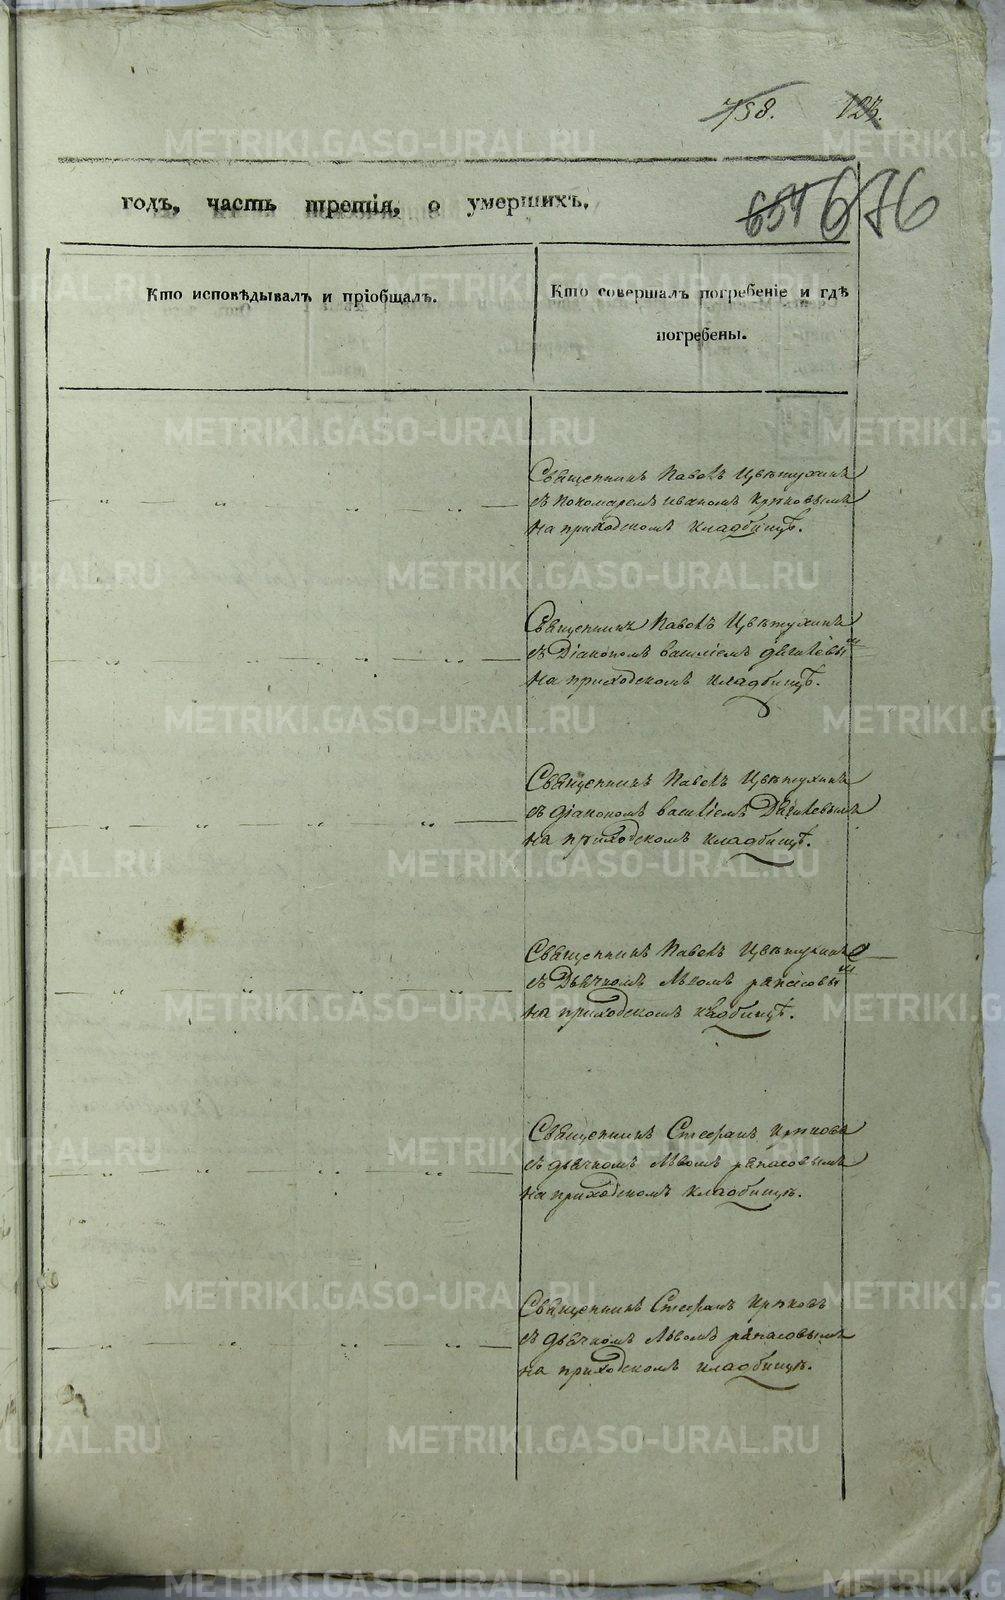 758. 123.
654 676
годъ, часть третія, о умершихъ.
Кто исповѣдывалъ и пріобщалъ.
Кто совершалъ погребеніе и гдѣ
погребены.
Священникъ Павелъ Цвѣтухинъ
съ пономаремъ иваномъ Крѣковымъ
на приходскомъ кладбищѣ.
Священникъ Павелъ Цвѣтухинъ
съ Діакономъ василіемъ
на приходскомъ кладбищѣ.
Священникъ Павелъ Цвѣтухинъ
съ діакономъ василіемъ
на приходскомъ кладбищѣ.
Священникъ Павелъ Цвѣтухинъ
съ Дьячкомъ Львомъ
на приходскомъ кладбищѣ.
Священникъ Стефанъ Крѣковъ
съ дьячкомъ Львомъ
на приходскомъ кладбищѣ.
Священникъ Стефанъ Крѣковъ
съ дьячкомъ Львомъ
на приходскомъ кладбищѣ.
METRIKI.GASO-URAL.RU